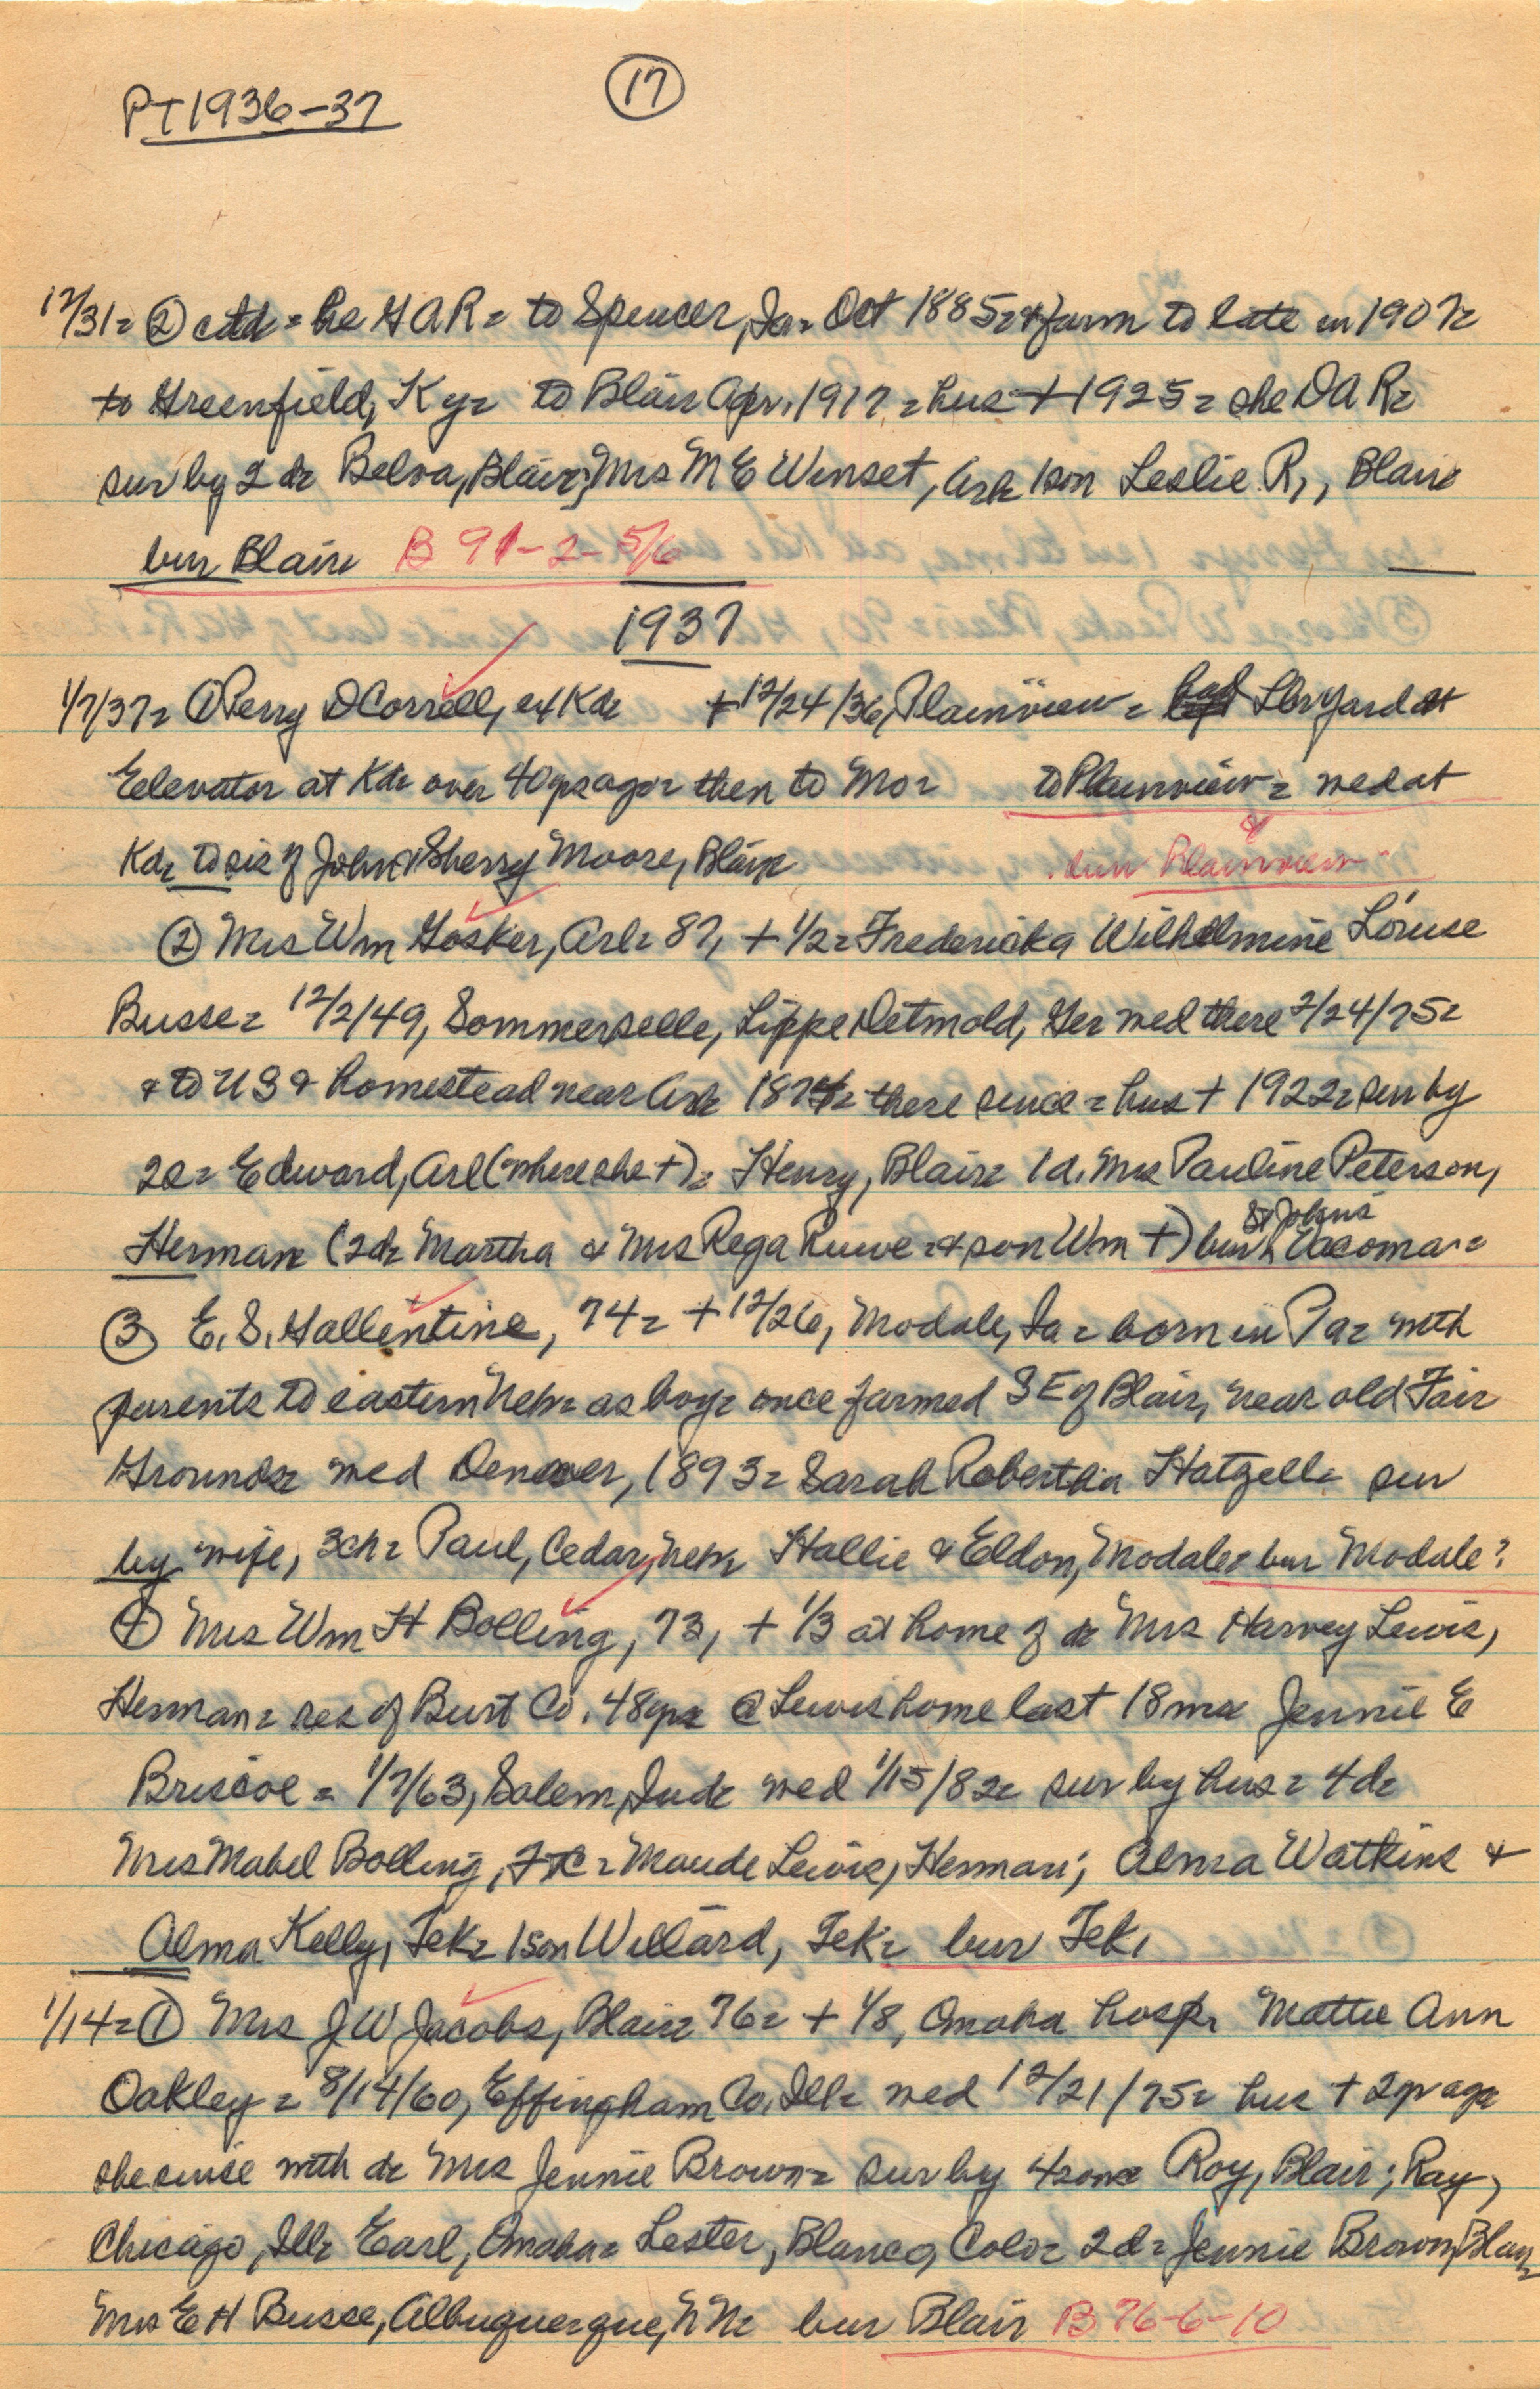 PT 1936-37
17
12/31= ② ctd = he GAR= to Spencer, Ia= Oct 1885= & farm to late in 1907=
to Greenfield, Ky= to Blair Apr. 1917 = hus + 1925 = she DAR=
sur by 2 d= Belva, Blair; Mrs M E Winset, Ark 1 son Leslie R., Blair=
bur Blair B 91-2-5/6
1937
1/7/37= ① Perry D Correll, ex Kd= + 12/24/36, Plainview = had Lbryard &
Eelevator at Kd= over 40 yrs ago= then to Mo= to Plainview = wed at
Kd= to sis of John & Sherry Moore, Blair bur Plainview
② Mrs Wm Gosker, Arl= 87, + 1/2= Fredericka Wilhelmine Louise
Busse= 12/2/49, Sommerselle, Lippe Detmold, Ger wed there 2/24/75=
& to US & homestead near Arl= 1874= there since = hus + 1922= sur by
2s= Edward, Arl (where she +)= Henry, Blair= 1 d. Mrs Pauline Peterson,
Herman= (2 d= Martha & Mrs Rega Ruwe = & son Wm +) bur St Johns Tacoma=
③ E. S. Hallentine, 74= + 12/26, Modale, Ia = born in Pa= with
parents to eastern Neb= as boy= once farmed SE of Blair, near old Fair
Grounds= wed Denver, 1893= Sarah Robertha Hatzell= sur
by wife, 3 ch= Paul, Cedar, Neb= Hallie & Eldon, Modale= bur Modale?
④ Mrs Wm H Bolling, 73, + 1/3 at home of d= Mrs Harvey Lewis,
Herman= res of Burt Co. 48 yrs= @ Lewis home last 18 ms= Jennie E
Briscoe = 1/7/63, Salem, Ind= wed 1/15/82= sur by hus= 4 d=
Mrs Mabel Bolling, FC= Maude Lewis, Herman; Alma Watkins &
Alma Kelly, Tek= 1 son Willard, Tek= bur Tek.
1/14= ① Mrs J W Jacobs, Blair= 76= + 1/8, Omaha hosp= Mattie Ann
Oakley = 8/14/60, Effingham Co, Ill= wed 12/21/75= hus + 2 yr ago
she since with d= Mrs Jennie Brown= sur by 4 sons= Roy, Blair; Ray,
Chicago, Ill= Earl, Omaha= Lester, Blanca, Colo= 2 d= Jennie Brown, Blair
Mrs E H Busse, Albuquerque, NM= bur Blair B 76-6-10